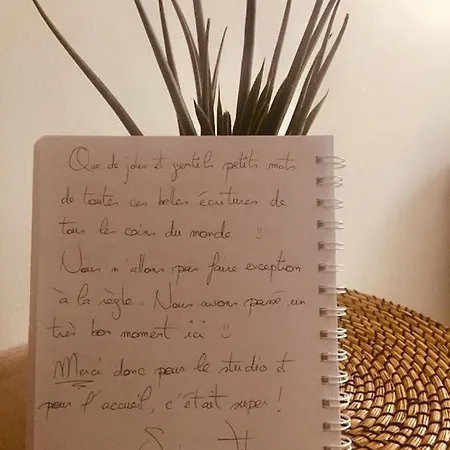 Que de jolis et gentils petits mots
de toutes ces belles écritures de
tous les coins du monde :)
Nous n'allons pas faire exception
à la règle. Nous avons passé un
très bon moment ici :)
Merci donc pour le studio et
pour l'accueil, c'était super !